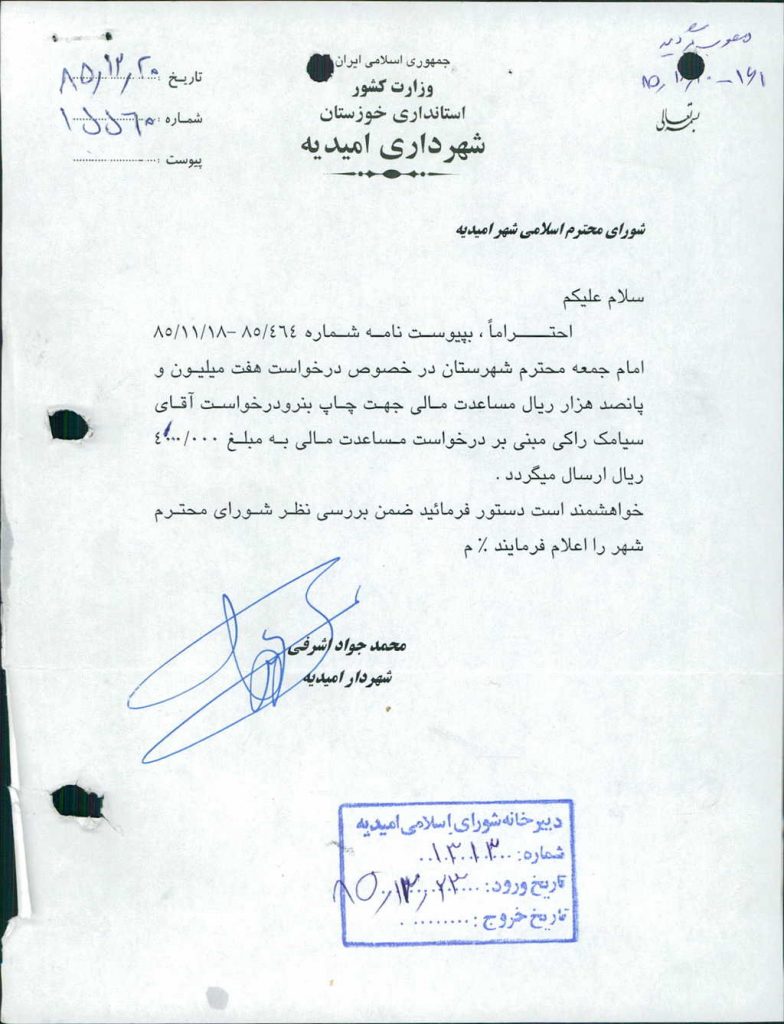 بسمه تعالی
جمهوری اسلامی ایران
وزارت کشور
استانداری خوزستان
شهرداری امیدیه
تاریخ : ۸۵/۱۲/۲۰
شماره : ۱۵۵۶۰
پیوست :
شورای محترم اسلامی شهر امیدیه
سلام علیکم
احتـــــراماً ، بپیوست نامـه شـماره ٨٥/٤٦٤ –٨٥/١١/١٨
امام جمعه محترم شهرستان در خصوص درخواست هفت میلیون و
پانصد هزار ریال مساعدت مالی جهت چاپ بنرودرخواسـت آقـای
سیامک راکی مبنی بر درخواست مسـاعدت مـالی بـه مبلـغ
ریال ارسال میگردد .
خواهشمند است دستور فرمائید ضمن بررسی نظر شـورای محتـرم
شهر را اعلام فرمایند ٪ م
محمد جواد اشرفی
شهردار امیدیه
دبیرخانه شورای اسلامی امیدیه
شماره:
تاریخ ورود: ۸۵/۱۲/۲۳
تاریخ خروج: